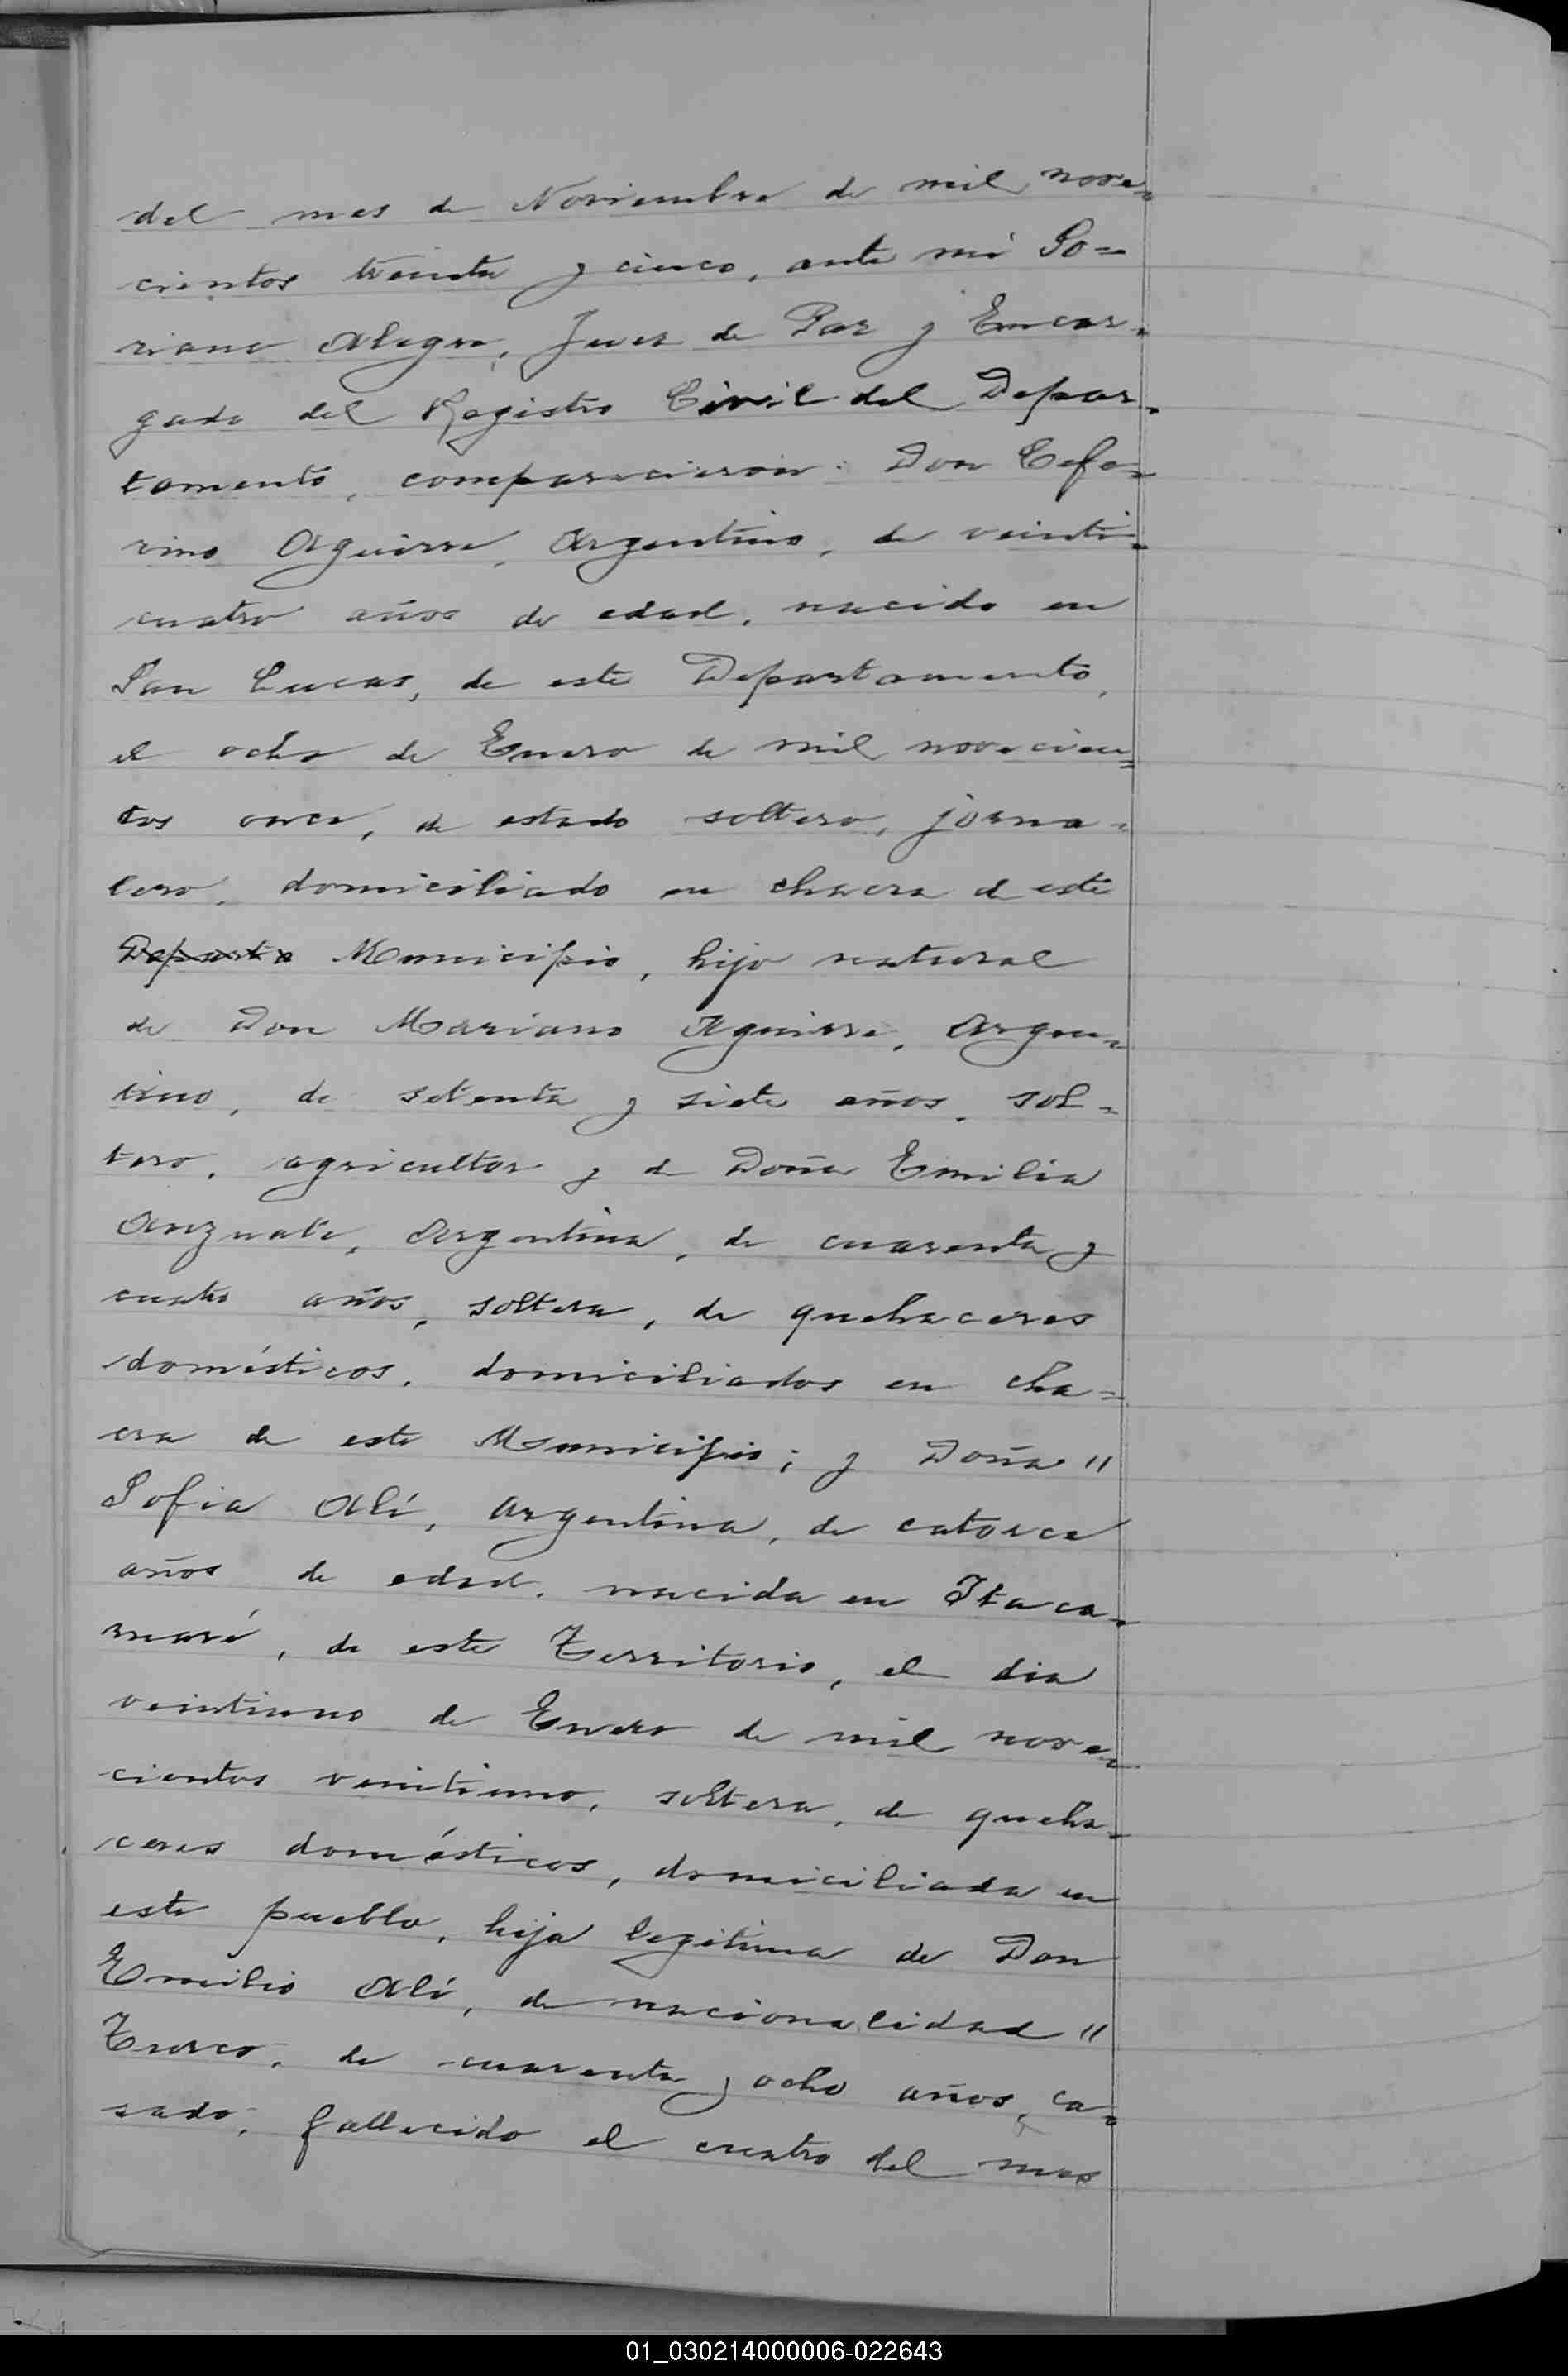 del mes de Noviembre de mil nove=
cientos treinta y cinco, ante mi So=
riano Alegre, Juez de Paz y Encar=
gado del Registro Civil del Depar=
tamento, comparecieron: Don Cefe=
rino Aguirre, Argentino, de veinti=
cuatro años de edad, nacido en
San Lucas, de este Departamento,
el ocho de Enero de mil novecien=
tos once, de estado soltero, jorna=
lero, domiciliado en chacra de este
Departo Municipio, hijo natural
de Don Mariano Aguirre, Argen=
tino, de setenta y siete años, sol=
tero, agricultor y de Doña Emilia
Anzuate, Argentina, de cuarenta y
cuatro años, soltera, de quehaceres
domésticos, domiciliados en cha=
cra de este Municipio; y Doña "
Sofia Alí, argentina, de catorce
años de edad, nacida en Itaca=
ruaré, de este Territorio, el dia
veintiuno de Enero de mil nove=
cientos veintiuno, soltera, de queha=
ceres domésticos, domiciliada en
este pueblo, hija legitima de Don
Emilio Alí, de nacionalidad "
Turco, de cuarenta y ocho años, ca=
sado, fallecido el cuatro del mes
01_030214000006-022643